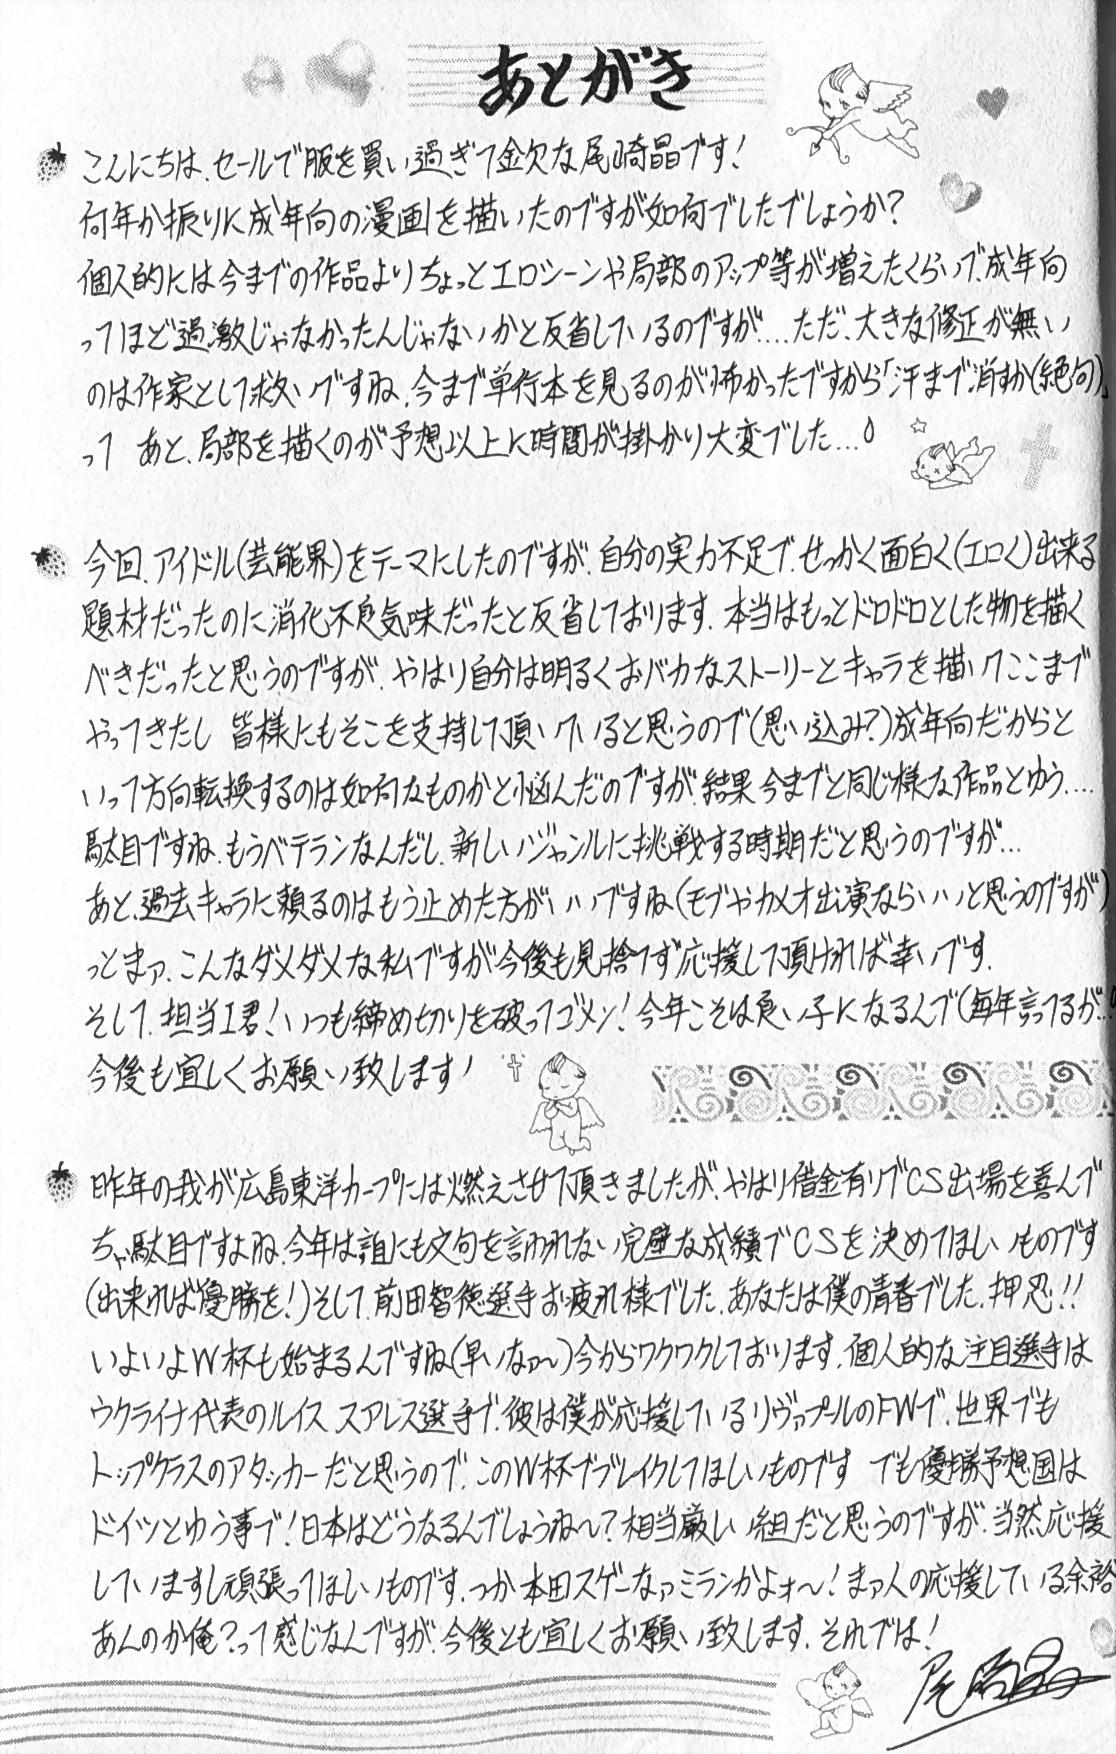 あとがき
こんにちは、セールで服を買い過ぎて金欠な尾崎晶です!
何年か振りに成年向の漫画を描いたのですが如何でしたでしょうか?
個人的には今までの作品よりちょっとエロシーンや局部のアップ等が増えたくらいで、成年向
ってほど過激じゃなかったんじゃないかと反省しているのですが....ただ、大きな修正が無い
のは作家として救いですね、今まで単行本を見るのが怖かったですから「汗まで消すか(絶句)」
って あと、局部を描くのが予想以上に時間が掛かり大変でした...
今回、アイドル(芸能界)をテーマにしたのですが、自分の実力不足で、せっかく面白く(エロく)出来る
題材だったのに消化不良気味だったと反省しております、本当はもっとドロドロとした物を描く
べきだったと思うのですが、やはり自分は明るくおバカなストーリーとキャラを描いてここまで
やってきたし 皆様にもそこを支持して頂いていると思うので(思い込み?)成年向だからと
いって方向転換するのは如何なものかと悩んだのですが、結果今までと同じ様な作品とゆう....
駄目ですね、もうベテランなんだし、新しいジャンルに挑戦する時期だと思うのですが...
あと、過去キャラに頼るのはもう止めた方がいいですね(モブやカメオ出演ならいいと思うのですが)
っとまァ、こんなダメダメな私ですが今後も見捨てず応援して頂ければ幸いです、
そして、担当I君!いつも締め切りを破ってゴメン!今年こそは良い子になるんで(毎年言ってるが..
今後も宜しくお願い致します!
昨年の我が広島東洋カープには燃えさせて頂きましたが、やはり借金有りでCS出場を喜んで
ちゃ駄目ですよね、今年は誰にも文句を言われない完璧な成績でCSを決めてほしいものです
(出来れば優勝を!)そして、前田智徳選手お疲れ様でした、あなたは僕の青春でした、押忍!!
いよいよW杯も始まるんですね(早いなァ~)今からワクワクしております、個人的な注目選手は
ウクライナ代表のルイス スアレス選手で、彼は僕が応援しているリヴァプールのFWで、世界でも
トップクラスのアタッカーだと思うので、このW杯でブレイクしてほしいものです でも優勝予想国は
ドイツとゆう事で!日本はどうなるんでしょうね~?相当厳しい組だと思うのですが、当然応援
していますし頑張ってほしいものです、つか本田スゲーなァミランかよォ~!まァ人の応援している余裕
あんのか俺?って感じなんですが、今後とも宜しくお願い致します、それでは!
尾崎晶